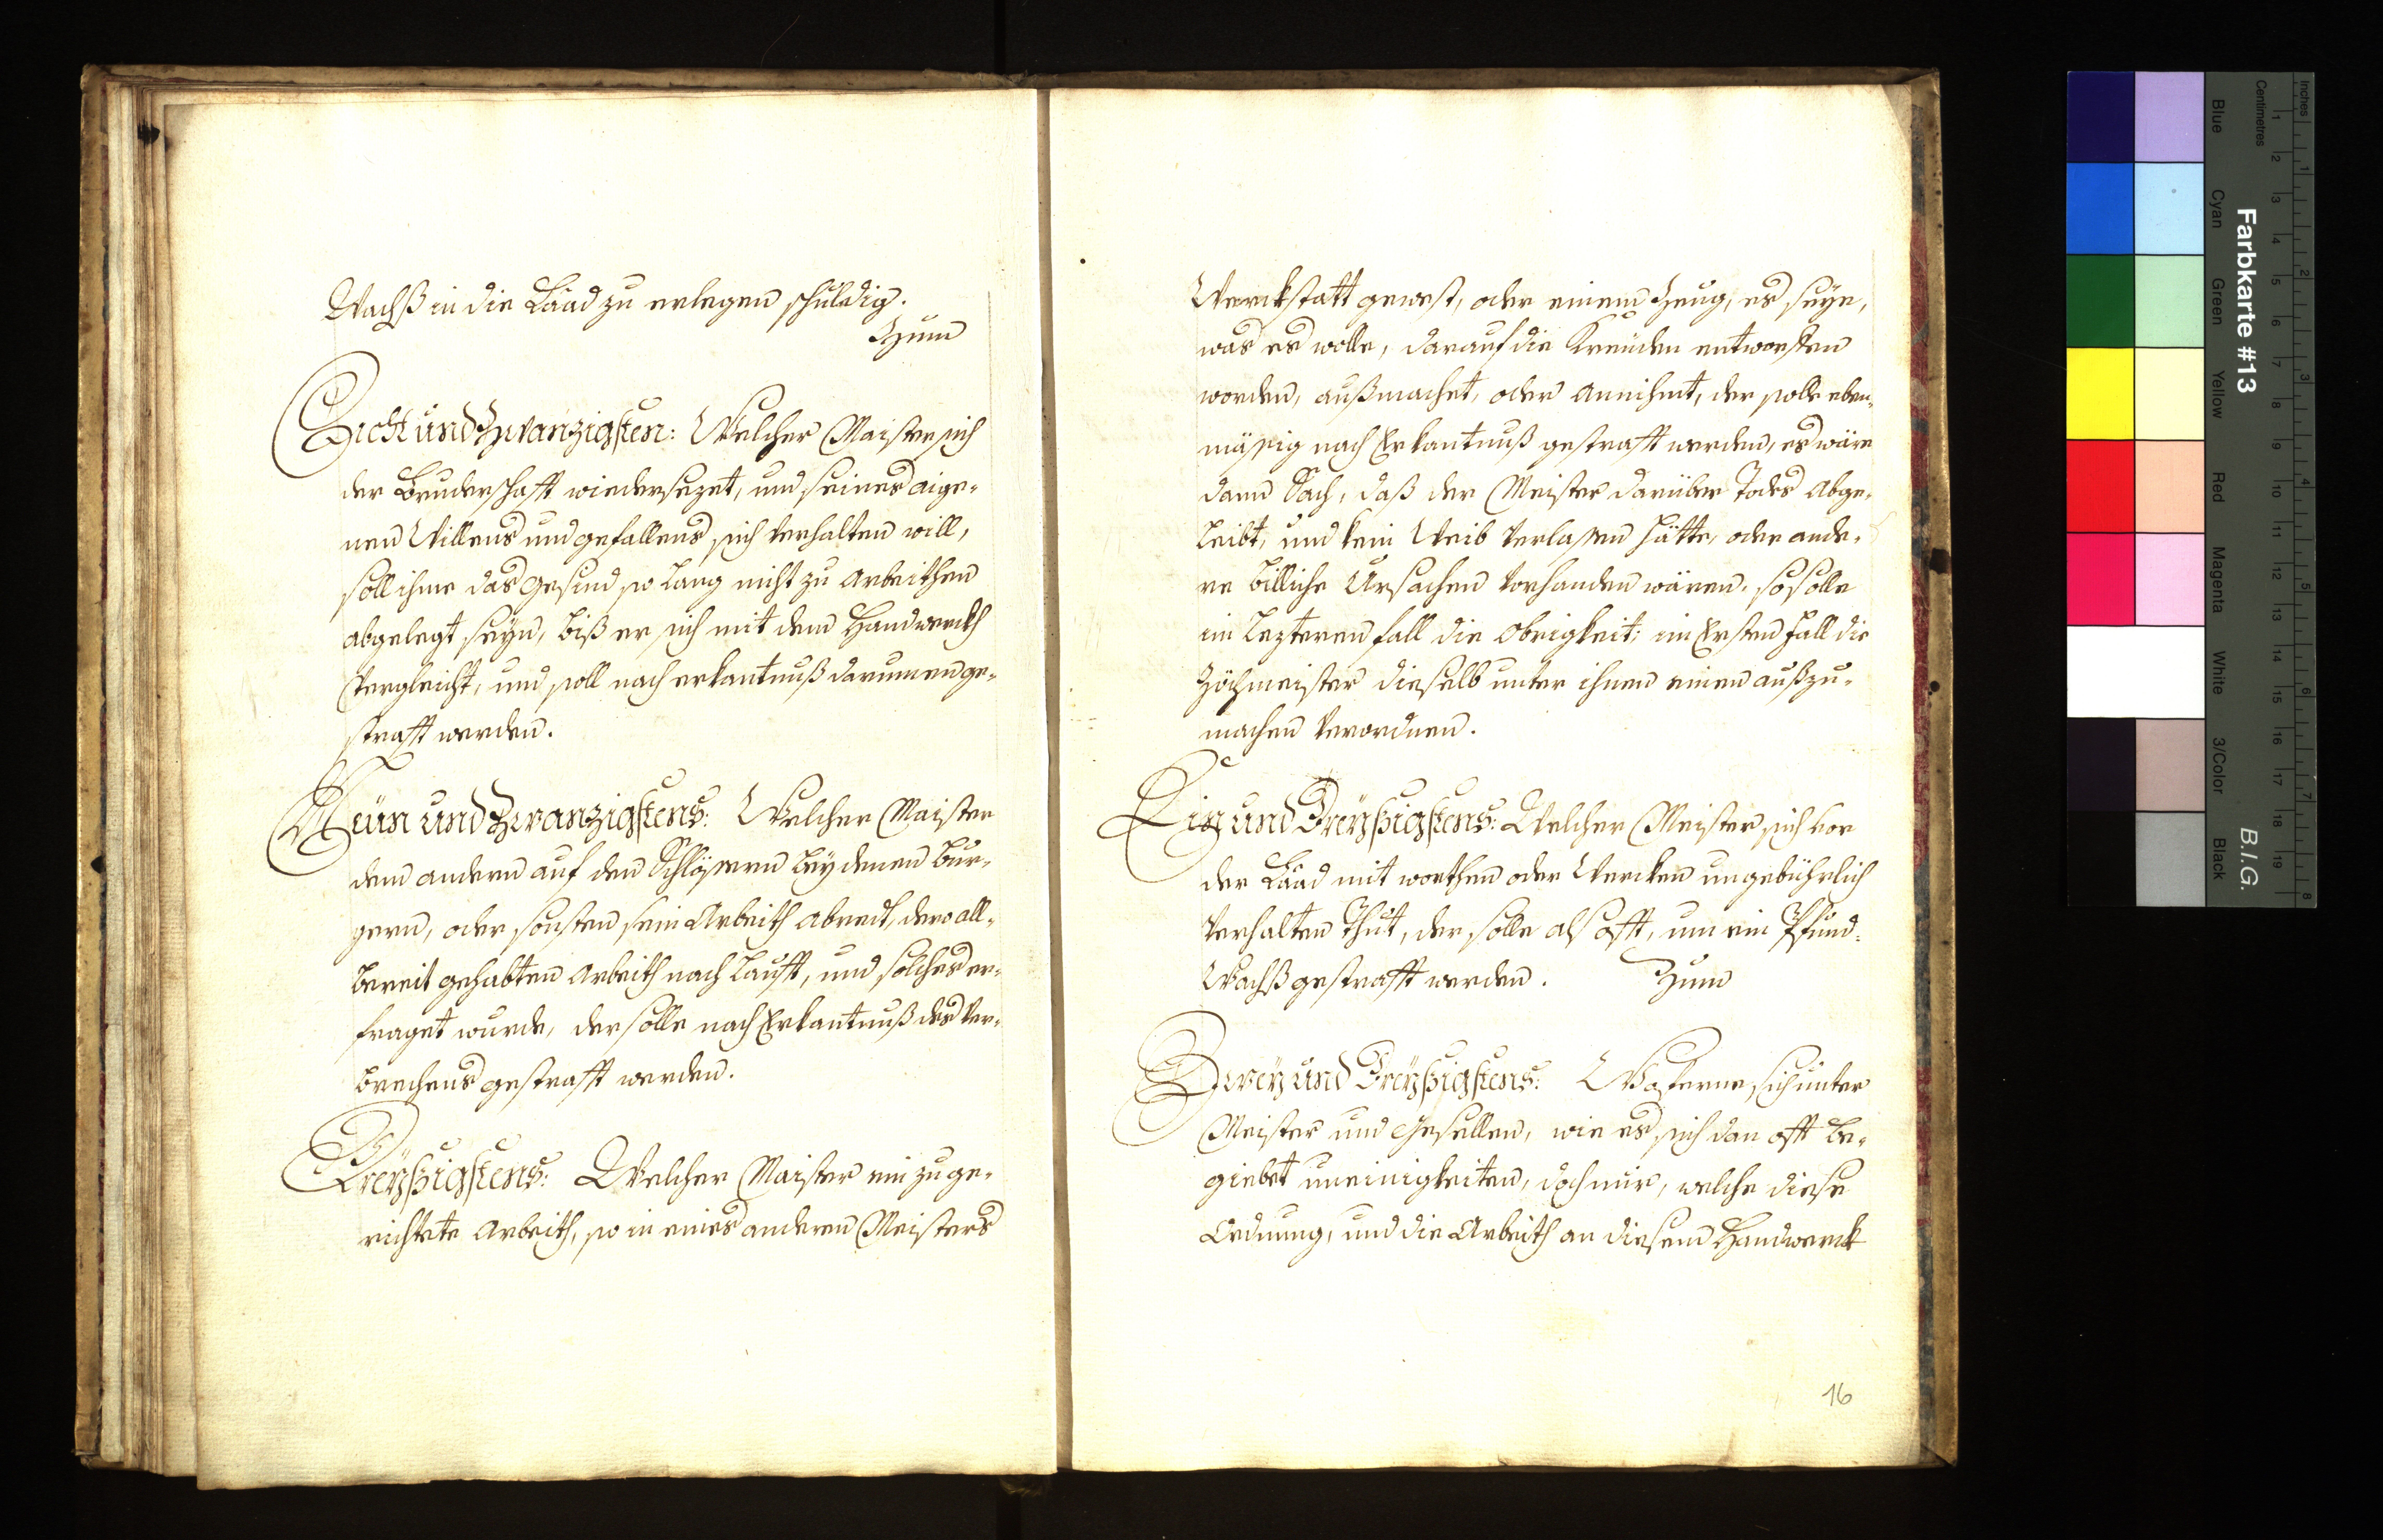 Wachß in die Laad zu erlegen schuldig.
Zum
Acht und Zwanzigsten: Welcher Maister sich
der Bruderschafft widersezet, und seines aige-
nen Willens und gefallens sich verhalten will,
soll ihme das gesind so lang nicht zu arbeithen
abgelegt seyn, biß er sich mit dem Handwerckh
vergleicht, und soll nach erkantnuß darumen ge-
strafft werden.
Neün und Zwanzigstens: Welcher Maister
dem andern auf den Schlössern bey denen bur-
gern, oder sonsten sein Arbeith abredt, der all-
bereit gehabten Arbeith nach laufft, und solches er-
fraget wurde, der solle nach Erkantnuß des ver-
brechens gestrafft werden.
Dreyßigstens: Welcher Maister ein zu ge-
richtete Arbeith, so in eines anderen Meisters
Werckstatt gewest, oder einem Zeug, es seye,
was es wolle, darauf die Kreuden entworffen
worden, außmachet, oder annihmt, der solle eben-
mässig nach Erkantnuß gestrafft werden, es wäre
dann Sach, daß der Meister darüber Todes abge-
leibt, und kein Weib verlassen hätte, oder ande-
re billiche Ursachen vorhanden wären. so solle
im lezteren fall die Obrigkeit: im Ersten fall die
Zöchmeister dieselb unter ihnen einen außzu-
machen verordnen.
Ein und Dreyßigstens: Welcher Meister sich vor
der Laad mit worthen oder Wercken ungebührlich
verhalten thut, der solle als offt, um ein Pfund
Wachß gestrafft werden. Zum
Zwey und Dreyßigstens: Woferne sich unter
Meister und Gesellen, wie es sich dan offt be-
giebet uneinigkeiten, doch nur, welche diese
Ordnung, und die Arbeith an diesem Handwerck
16
Farbkarte #13
B.I.G.
Inches
Centimetres
Blue
Cyan
Green
Yellow
Red
Magenta
White
3/Color
Black